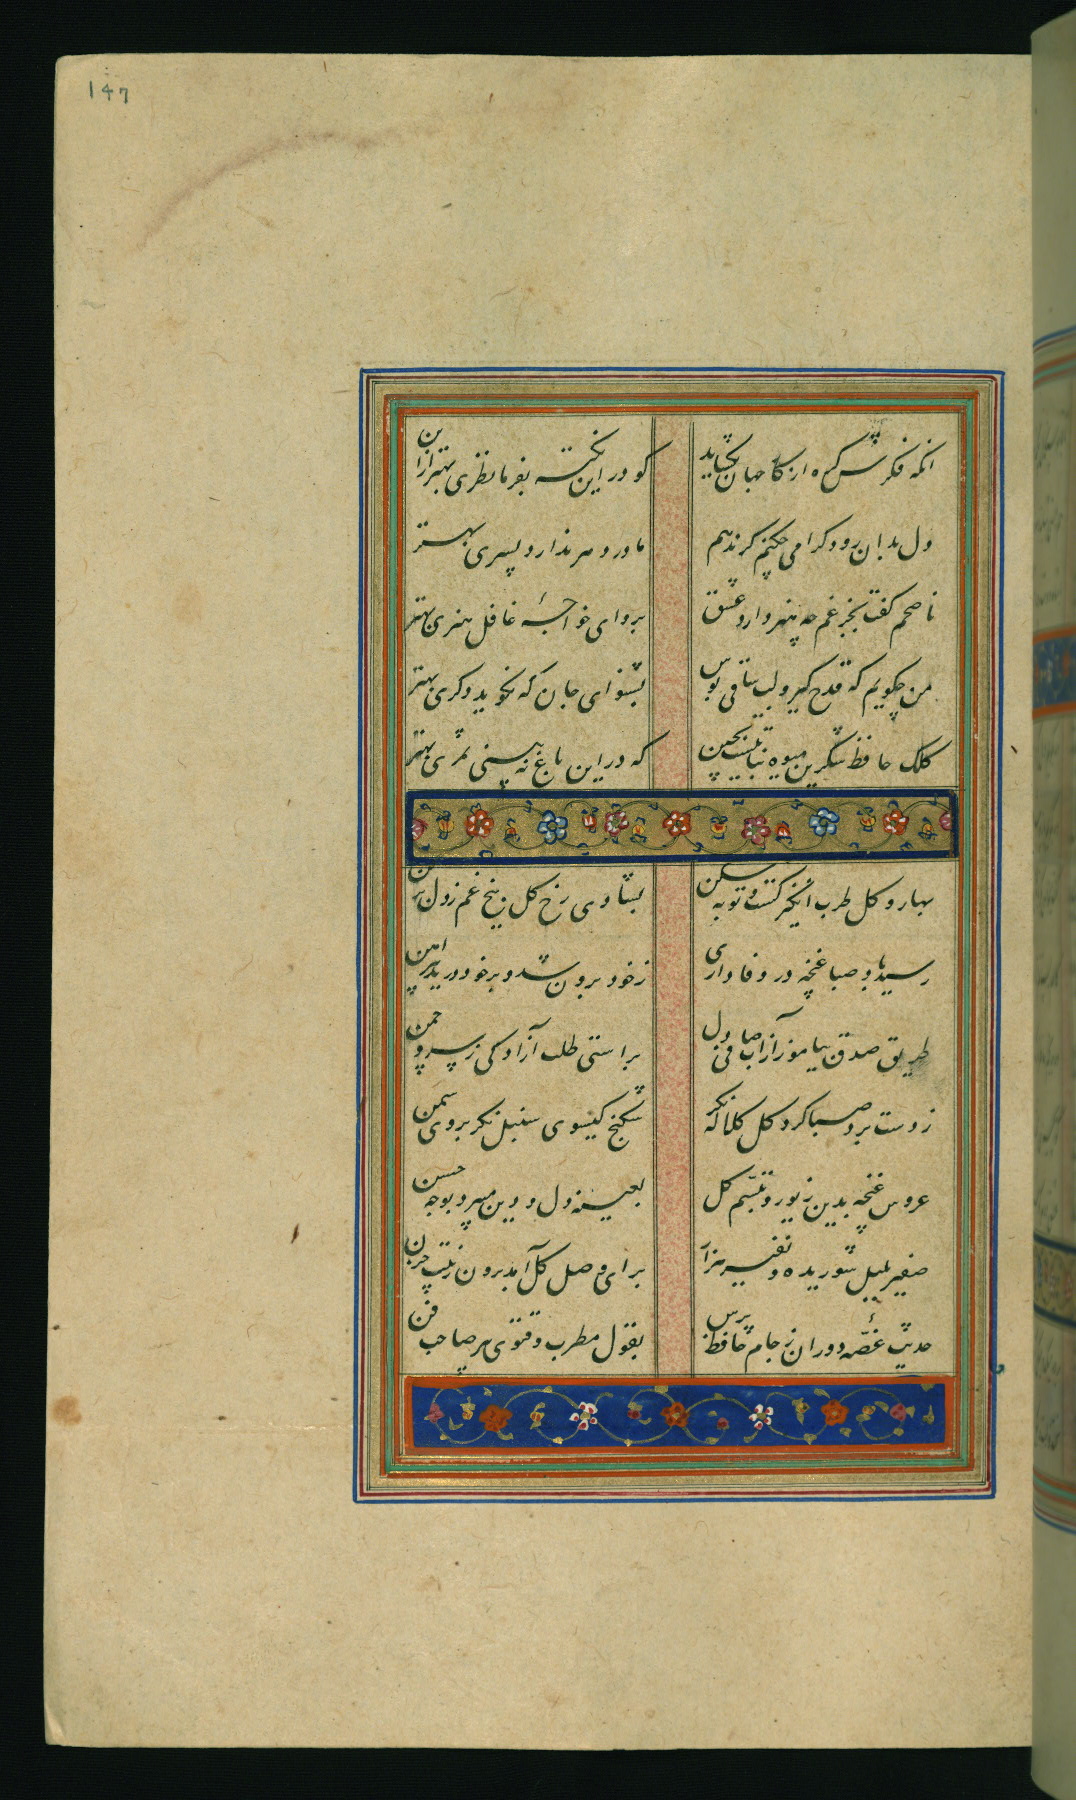 147
آنکه فکرش گره از کار جهان بگشاید
گو در این نکته بفرما نظری بهتر ازین
دل بدان رود گرامی چکنم گر ندهم
مادر دهر ندارد پسری بهتر
ناصحم گفت بجز غم چه هنر دارد عشق
برو ای خواجهٔ عاقل هنری بهتر
من چگویم که قدح گیر و لب ساقی بوس
بشنو ای جان که نگوید دگری بهتر
کلک حافظ شکرین میوه نباتیست بچین
که در این باغ نه بینی ثمری بهتر
بهار و گل طرب انگیز گشت و توبه شکن
بشادی رخ گل بیخ غم ز دل برکن
رسید باد صبا غنچه در وفاداری
ز خود برون شد و بر خود درید پیراهن
طریق صدق بیاموز از آب صافی دل
براستی طلب آزادگی ز سرو چمن
ز دست برد صبا گرد گل کلاله نگر
شکنج گیسوی سنبل نگر بروی سمن
عروس غنچه بدین زیور و تبسّم گل
بعینه دل و دین میبرد بوجه حسن
صفیر بلبل شوریده و نفیر هزار
برای وصل گل آمد برون ز بیت حزن
حدیث غصّهٔ دوران ز جام پرس حافظ
بقول مطرب و فتوی پیر صاحب فن